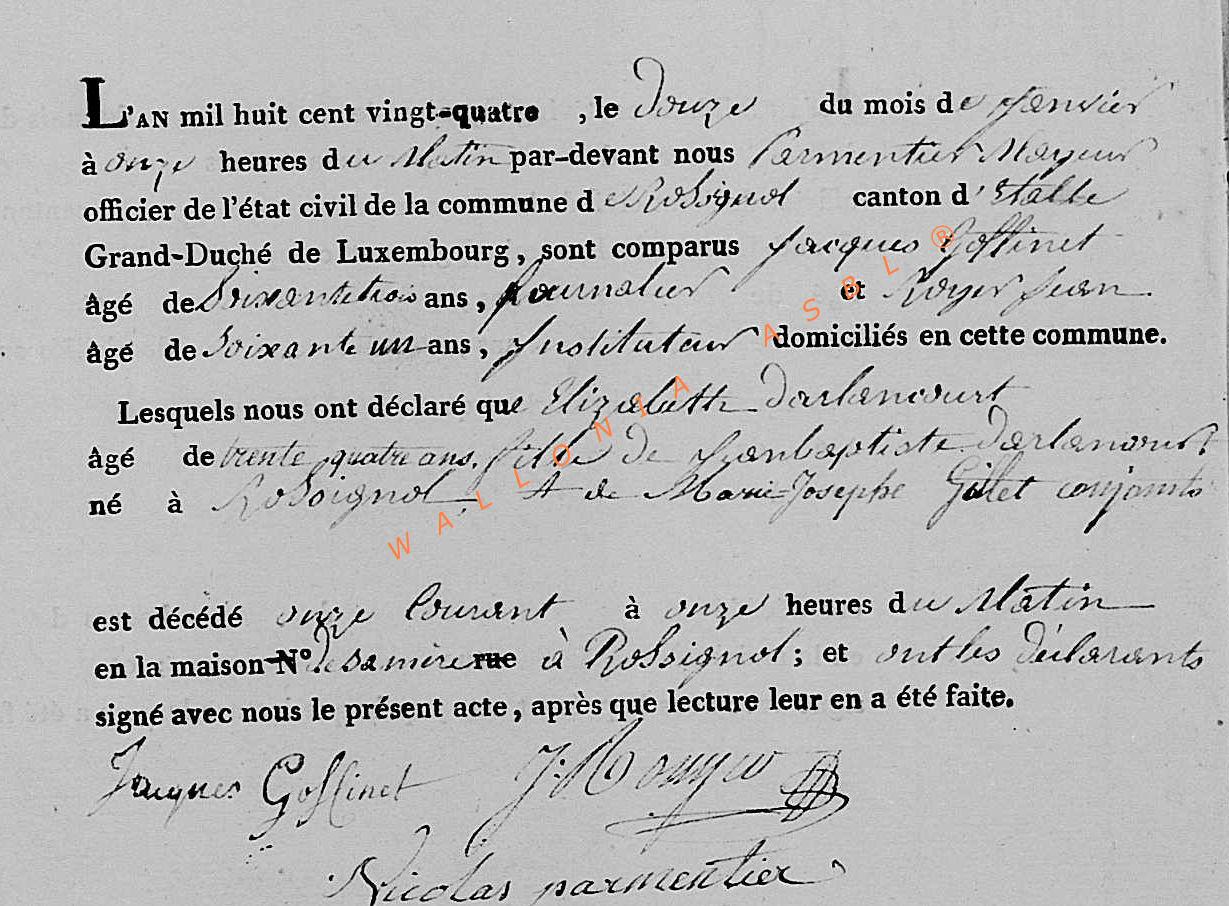 L'AN mil huit cent vingt-quatre , le Douze du mois de Janvier
à onze heures du Matin par-devant nous Parmentier Mayeur
officier de l'état civil de la commune de Rossignol canton d'Etalle
Grand-Duché de Luxembourg, sont comparus Jacques Goffinet
âgé de Soixantetrois ans, Journalier et Royer Jean
âgé de Soixante un ans, Instituteur domiciliés en cette commune.
Lesquels nous ont déclaré que Elizabeth Darlancourt
âgé de trente quatre ans. fille de Jeanbaptiste Darlancourt
né à Rossignol. & de Marie-Josephe Gillet conjoints
est décédé onze Courant à onze heures du Matin
en la maison N° de sa mère rue à Rossignol; et ont les Déclarants
signé avec nous le présent acte, après que lecture leur en a été faite.
Jacques Goffinet J: Rouyer
Nicolas parmentier
WALLONIA ASBL ®